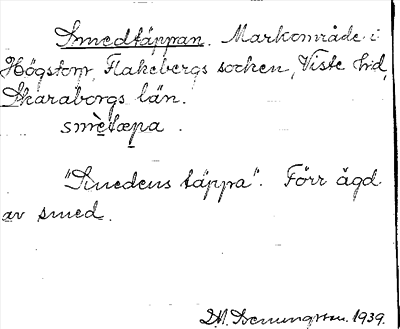 Smedtäppan. Markområde i
Högstorp, Flakebergs socken, Viste hd,
Skaraborgs län.
smètæpa.
"Smedens täppa". Förr ägd
av smed.
1939.